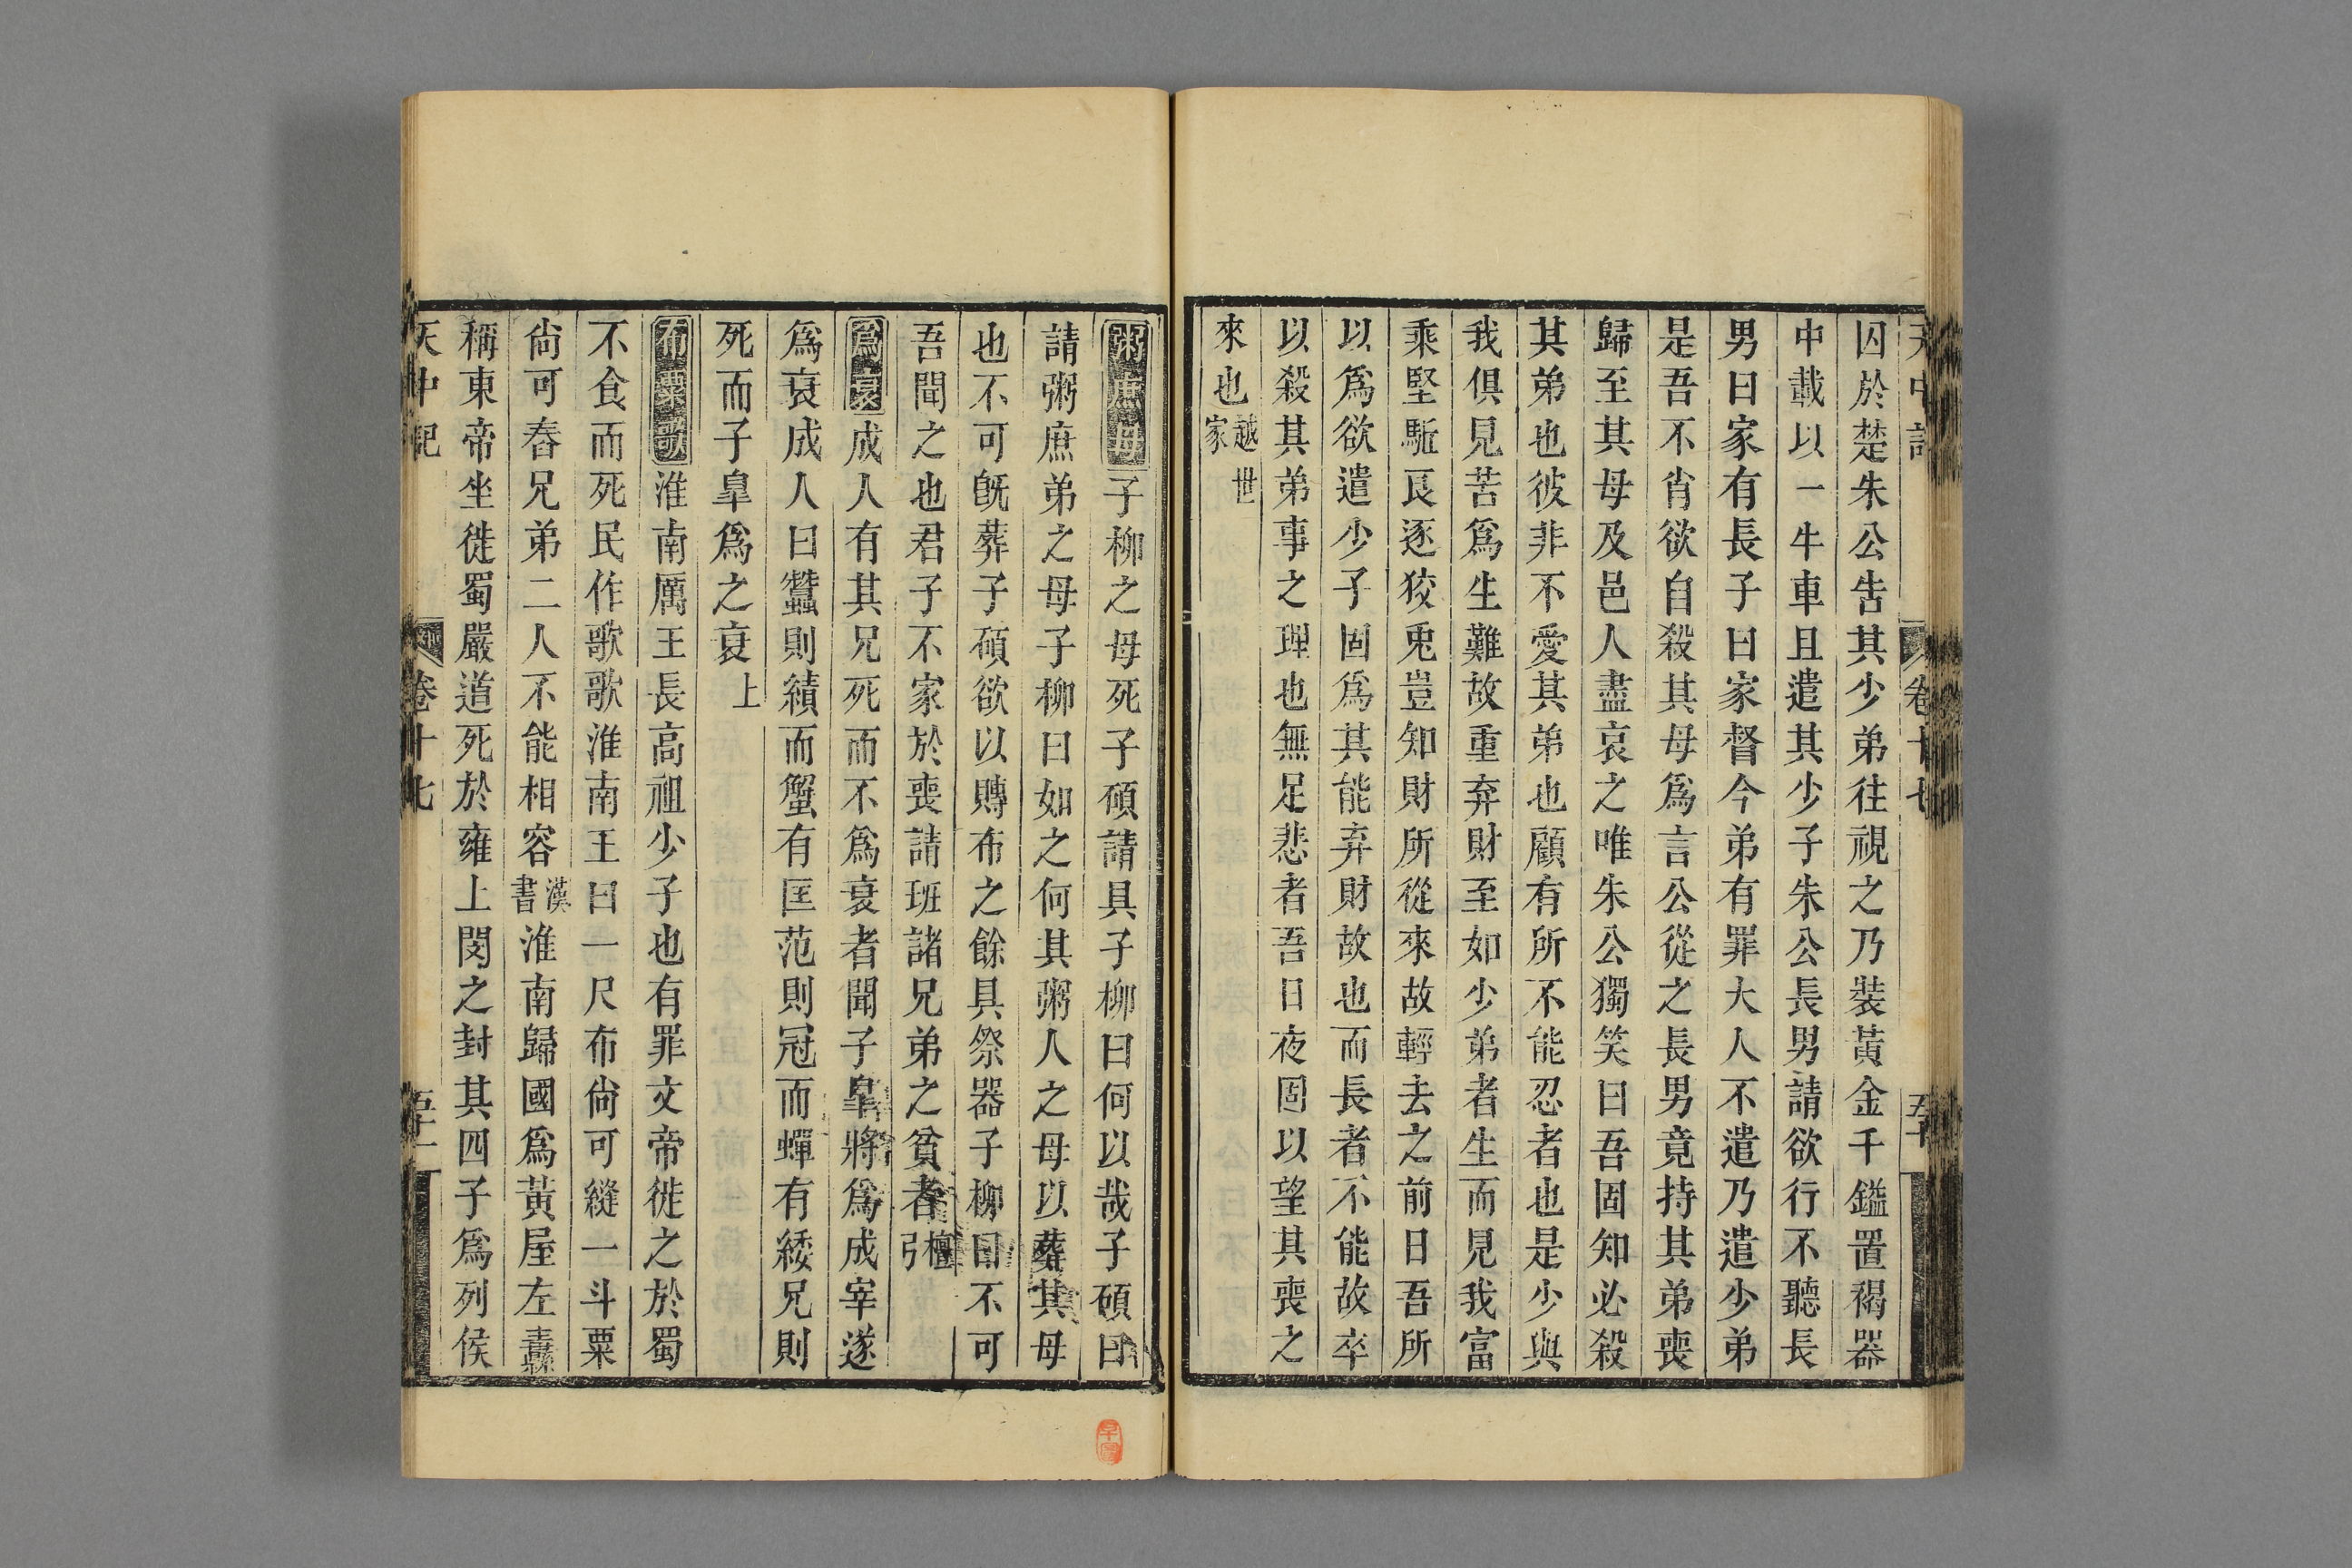 天中記 卷十七 五十
囚於楚朱公告其少弟往視之乃裝黃金千鎰置褐器
中載以一牛車且遣其少子朱公長男請欲行不聽長
男曰家有長子曰家督今弟有罪大人不遣乃遣少弟
是吾不肖欲自殺其母爲言公從之長男竟持其弟喪
歸至其母及邑人盡哀之唯朱公獨笑曰吾固知必殺
其弟也彼非不愛其弟也顧有所不能忍者也是少與
我俱見苦爲生難故重弃財至如少弟者生而見我富
乘堅駈良逐狡兎豈知財所從來故輕去之前日吾所
以爲欲遣少子固爲其能弃財故也而長者不能故卒
以殺其弟事之理也無足悲者吾日夜固以望其喪之
來也越世家
粥庶母子柳之母死子碩請具子柳曰何以哉子碩曰
請粥庶弟之母子柳曰如之何其粥人之母以葬其母
也不可旣葬子碩欲以賻布之餘具祭器子柳曰不可
吾聞之也君子不家於喪請班諸兄弟之貧者檀弓
爲衰成人有其兄死而不爲衰者聞子皐將爲成宰遂
爲衰成人曰蠶則績而蟹有匡范則冠而蟬有緌兄則
死而子皐爲之衰上
布粟歌淮南厲王長高祖少子也有罪文帝徙之於蜀
不食而死民作歌歌淮南王曰一尺布尙可縫一斗粟
尙可舂兄弟二人不能相容漢書淮南歸國爲黃屋左纛
稱東帝坐徙蜀嚴道死於雍上閔之封其四子爲列侯
天中記 卷十七 五十一